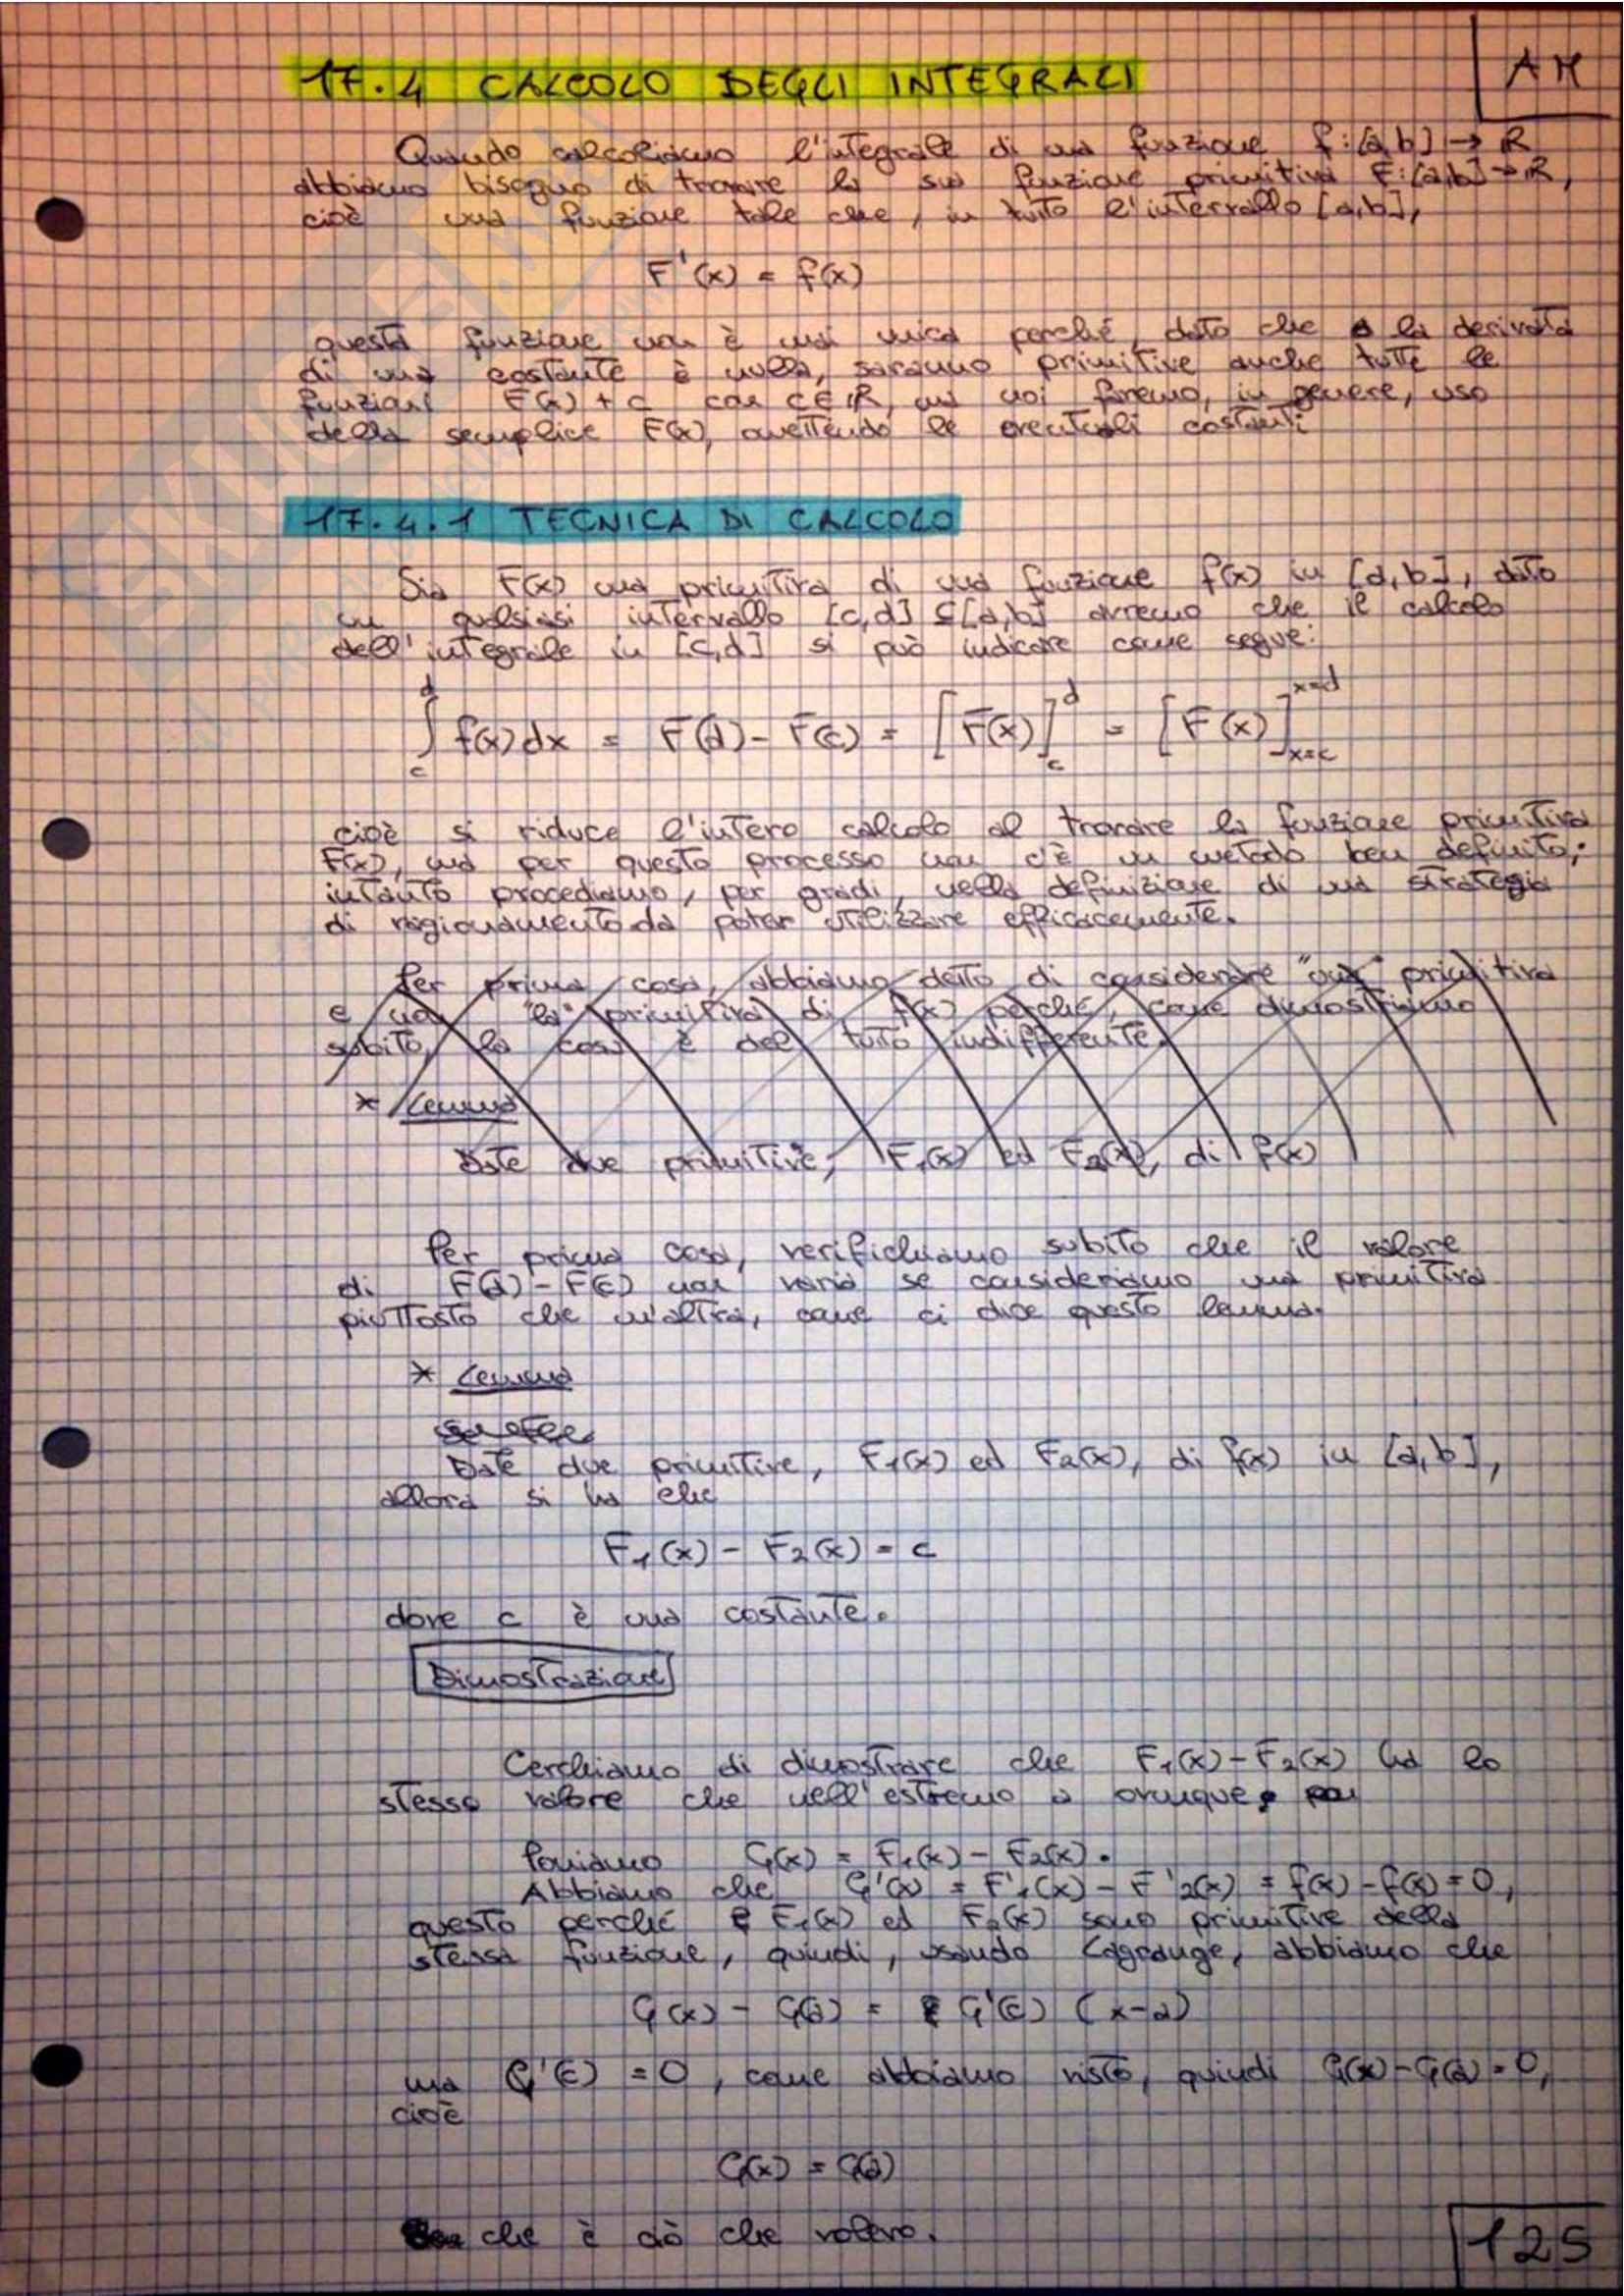 AM
17.4 CALCOLO DEGLI INTEGRALI
Quando calcoliamo l'integrale di una funzione f:[a,b]→R
abbiamo bisogno di trovare la sua funzione primitiva F:[a,b]→R,
cioè una funzione tale che, in tutto l'intervallo [a,b],
F'(x) = f(x)
questa funzione non è mai unica perché, dato che la derivata
di una costante è nulla, saranno primitive anche tutte le
funzioni F(x)+c con c∈R, ma noi faremo, in genere, uso
della semplice F(x), omettendo le eventuali costanti
17.4.1 TECNICA DI CALCOLO
Sia F(x) una primitiva di una funzione f(x) in [a,b], dato
un qualsiasi intervallo [c,d]⊆[a,b] avremo che il calcolo
dell'integrale in [c,d] si può indicare come segue:
∫_c^d f(x)dx = F(d)-F(c) = [F(x)]_c^d = [F(x)]_{x=c}^{x=d}
cioè si riduce l'intero calcolo al trovare la funzione primitiva
F(x), ma per questo processo non c'è un metodo ben definito;
intanto procediamo, per gradi, nella definizione di una strategia
di ragionamento da poter utilizzare efficacemente.
Per prima cosa, abbiamo detto di considerare "una" primitiva
e non "la" primitiva di f(x) perché, come dimostriamo
subito, la cosa è del tutto indifferente.
* Lemma
Date due primitive, F₁(x) ed F₂(x), di f(x)
Per prima cosa, verifichiamo subito che il valore
di F(d)-F(c) non varia se consideriamo una primitiva
piuttosto che un'altra, come ci dice questo lemma.
* Lemma
Date due primitive, F₁(x) ed F₂(x), di f(x) in [a,b],
allora si ha che
F₁(x) - F₂(x) = c
dove c è una costante.
Dimostrazione
Cerchiamo di dimostrare che F₁(x)-F₂(x) ha lo
stesso valore che nell'estremo a ovunque.
Poniamo G(x) = F₁(x) - F₂(x).
Abbiamo che G'(x) = F'₁(x) - F'₂(x) = f(x) - f(x) = 0,
questo perché F₁(x) ed F₂(x) sono primitive della
stessa funzione, quindi, usando Lagrange, abbiamo che
G(x) - G(a) = G'(c) (x-a)
ma G'(c) = 0, come abbiamo visto, quindi G(x)-G(a)=0,
cioè
G(x) = G(a)
che è ciò che volevo.
125